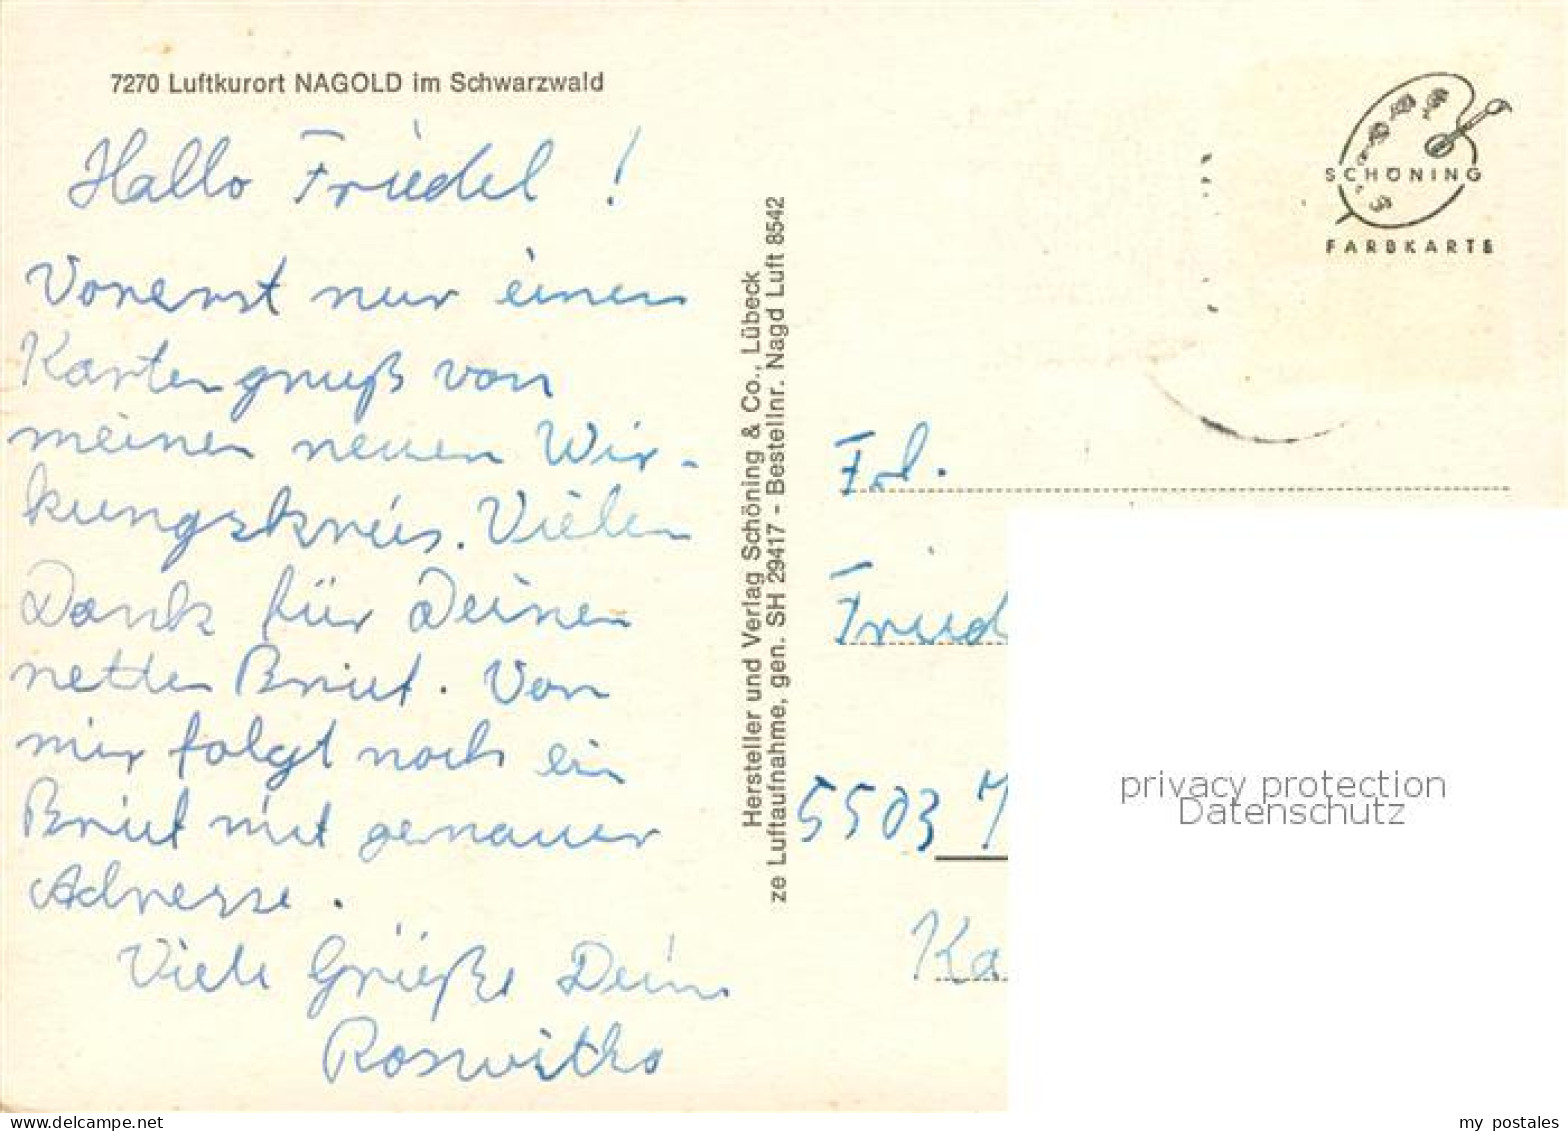 7270 Luftkurort NAGOLD im Schwarzwald
Hallo Friedel !
Vorerst nur einen
Kartengruß von
meinen neuen Wir-
kungskreis. Vielen
Dank für Deinen
netten Brief. Von
mir folgt noch ein
Brief mit genauer
Adresse.
Viele Grüße Deine
Roswitha
Hersteller und Verlag Schöning & Co., Lübeck
ze Luftaufnahme, gen. SH 29417 - Bestellnr. Nagd Luft 8542
SCHÖNING
FARBKARTE
Frl.
Fried
5503
Ka
privacy protection
Datenschutz
my postales